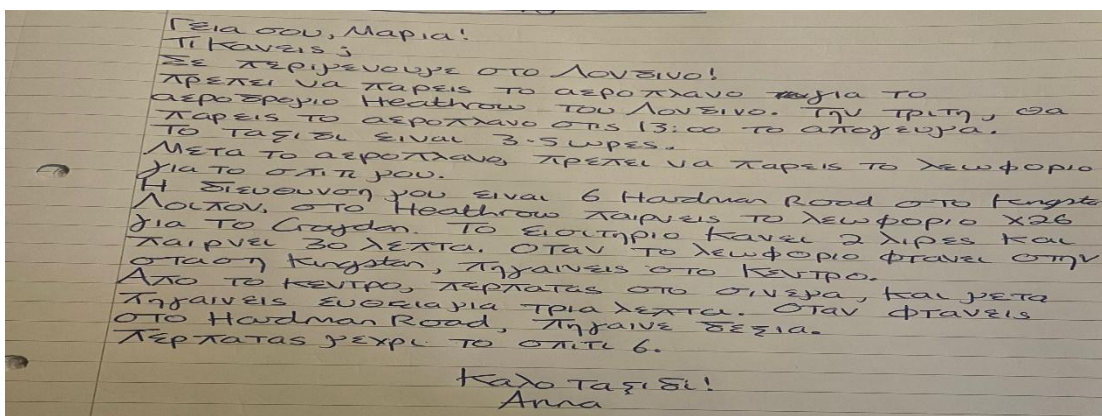 Γεια σου, Μαρια!
Τι κανεις;
Σε περιμενουμε στο Λονδινο!
Πρεπει να παρεις το αεροπλανο για το
αεροδρομιο Heathrow του Λονδινο. Την τριτη, θα
παρεις το αεροπλανο στις 13:00 το απογευμα.
Το ταξιδι ειναι 3.5 ωρες.
Μετα το αεροπλανο, πρεπει να παρεις το λεωφοριο
για το σπιτι μου.
Η διευθυνση μου ειναι 6 Hardman Road στο
Λοιπον, στο Heathrow παιρνεις το λεωφοριο X26
για το Croydon. Το εισιτηριο κανει 2 λιρες και
παιρνει 30 λεπτα. Οταν το λεωφοριο φτανει στην
σταση Kingston, πηγαινεις στο κεντρο.
Απο το κεντρο, περπατας στο σινεμα, και μετα
πηγαινεις ευθεια για τρια λεπτα. Οταν φτανεις
στο Hardman Road, πηγαινε δεξια.
Περπατας μεχρι το σπιτι 6.
Καλο ταξιδι!
Anna